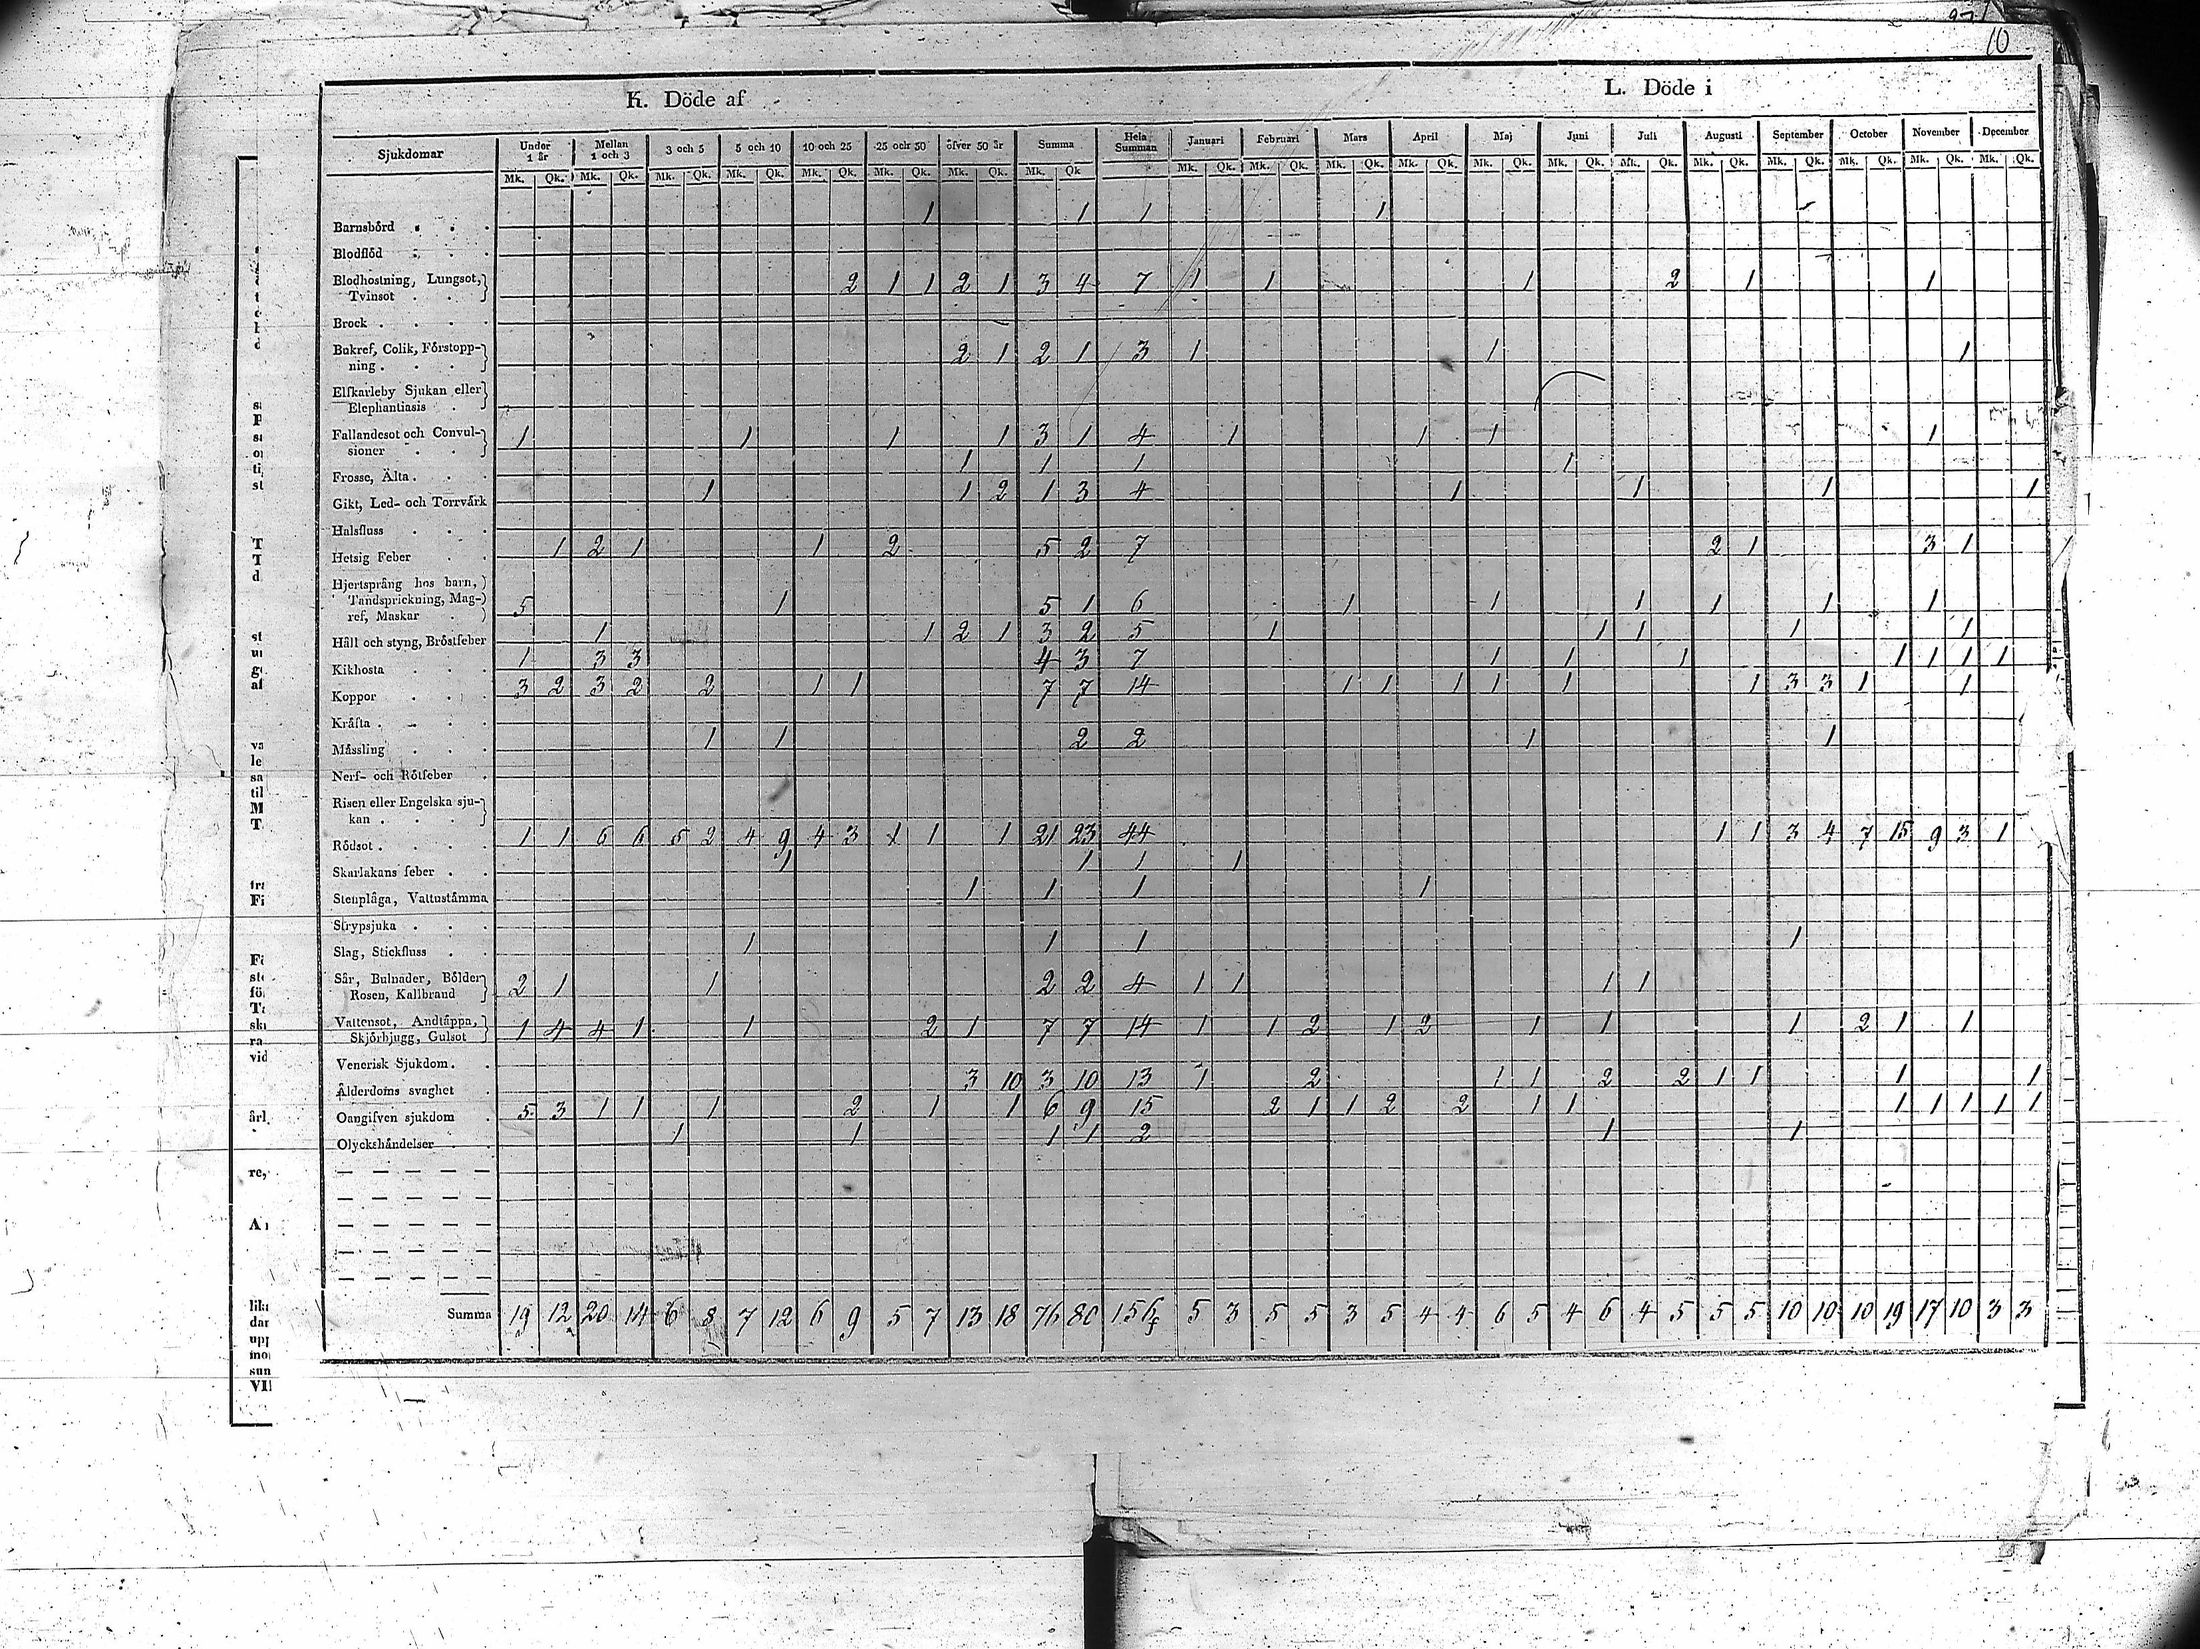 10
K. Döde af
L. Döde i
Sjukdomar Under 1 år Mellan 1 och 3 3 och 5 5 och 10 10 och 25 25 och 50 öfver 50 år Summa Hela Summan Januari Februari Mars April Maj Juni Juli Augusti September October November December
Mk. Qk. Mk. Qk. Mk. Qk. Mk. Qk. Mk. Qk. Mk. Qk. Mk. Qk. Mk. Qk Mk. Qk. Mk. Qk. Mk. Qk. Mk. Qk. Mk. Qk. Mk. Qk. Mk. Qk. Mk. Qk. Mk. Qk. Mk. Qk. Mk. Qk. Mk. Qk.
Barnsbörd 1 1 1 1
Blodflöd
Blodhostning, Lungsot,
Tvinsot 2 1 1 2 1 3 4 7 1 1 1 2 1 1
Brock
Bukref, Colik, Förstopp-
ning 2 1 2 1 3 1 1 1
Elfkarleby Sjukan eller
Elephantiasis
Fallandesot och Convul-
sioner 1 1 1 1 3 1 4 1 1 1 1
Frosse, Älta 1 1 1 1
Gikt, Led- och Torrvårk 1 1 2 1 3 4 1 1 1 1
Halsfluss
Hetsig Feber 1 2 1 1 2 5 2 7 2 1 3 1
Hjertsprång hos barn,
Tandsprickning, Mag-
ref, Maskar 5 1 5 1 6 1 1 1 1 1 1
Håll och styng, Bröstfeber 1 1 2 1 3 2 5 1 1 1 1 1
Kikhosta 1 3 3 4 3 7 1 1 1 1 1 1 1
Koppor 3 2 3 2 2 1 1 7 7 14 1 1 1 1 1 1 3 3 1 1
Kräfta
Mässling 1 1 2 2 1 1
Nerf- och Rötfeber
Risen eller Engelska sju-
kan
Rödsot 1 1 6 6 5 2 4 9 4 3 1 1 1 21 23 44 1 1 3 4 7 15 9 3 1
Skarlakans feber 1 1 1 1
Stenplåga, Vattustämma 1 1 1 1
Strypsjuka
Slag, Stickfluss 1 1 1 1
Sår, Bulnader, Bölder
Rosen, Kallbrand 2 1 1 2 2 4 1 1 1 1
Vattensot, Andtäppa,
Skjörbjugg, Gulsot 1 4 4 1 1 2 1 7 7 14 1 1 2 1 2 1 1 1 2 1 1
Venerisk Sjukdom
Ålderdoms svaghet 3 10 3 10 13 1 2 1 1 2 2 1 1 1 1
Oangifven sjukdom 5 3 1 1 1 2 1 1 6 9 15 2 1 1 2 2 1 1 1 1 1 1 1
Olyckshändelser 1 1 1 1 2 1 1
Summa 19 12 20 14 6 8 7 12 6 9 5 7 13 18 76 80 156 5 3 5 5 3 5 4 4 6 5 4 6 4 5 5 5 10 10 10 19 17 10 3 3